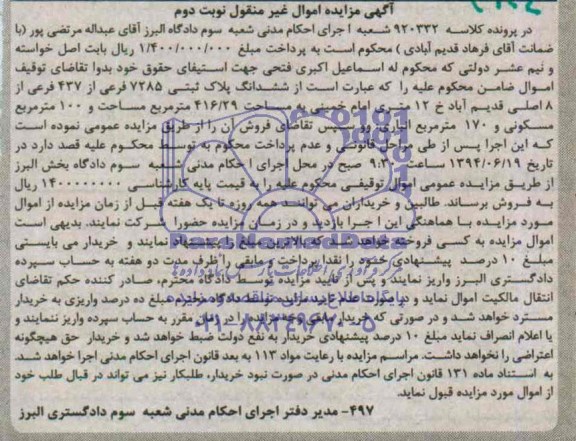 آگهی مزایده اموال غیر منقول نوبت دوم
در پرونده کلاسه ۹۲۰۳۳۲ شعبه اجرای احکام مدنی شعبه سوم دادگاه البرز آقای عبداله مرتضی پور (با
ضمانت آقای فرهاد قدیم آبادی) محکوم است به پرداخت مبلغ ۱/۴۰۰/۰۰۰/۰۰۰ ریال بابت اصل خواسته
و نیم عشر دولتی که محکوم له اسماعیل اکبری فتحی جهت استیفای حقوق خود بدوا تقاضای توقیف
اموال ضامن محکوم علیه را که عبارت است از ششدانگ پلاک ثبتی ۷۲۸۵ فرعی از ۴۳۷ فرعی از
۸ اصلی قدیم آباد خ ۱۲ متری امام خمینی به مساحت ۴۱۶/۲۹ مترمربع مساحت و ۱۰۰ مترمربع
مسکونی و ۱۷۰ مترمربع انباری و سپس تقاضای فروش آن را از طریق مزایده عمومی نموده است
که این اجرا پس از طی مراحل قانونی و عدم پرداخت محکوم به توسط محکوم علیه قصد دارد در
تاریخ ۱۳۹۴/۰۶/۱۹ ساعت ۹:۳۰ صبح در محل اجرای احکام مدنی شعبه سوم دادگاه بخش البرز
از طریق مزایده عمومی اموال توقیفی محکوم علیه را به قیمت پایه کارشناسی ۱۴۰۰۰۰۰۰۰۰ ریال
به فروش برساند. طالبین و خریداران می توانند همه روزه تا یک هفته قبل از زمان مزایده از اموال
مورد مزایده با هماهنگی این اجرا بازدید و در زمان مزایده حضورا شرکت نمایند. بدیهی است
اموال مزایده به کسی فروخته خواهد شد که بالاترین مبلغ را پیشنهاد نمایند و خریدار می بایستی
مبلغ ۱۰ درصد پیشنهادی خود را نقدا پرداخت و مابقی را ظرف مدت دو هفته به حساب سپرده
دادگستری البرز واریز نمایند و پس از تایید مزایده توسط دادگاه محترم، صادر کننده حکم تقاضای
انتقال مالکیت اموال نماید و در صورت عدم تایید مزایده توسط دادگاه محترم مبلغ ده درصد واریزی به خریدار
مسترد خواهد شد و در صورتی که خریدار مابقی وجه مزایده را در زمان مقرر به حساب سپرده واریز ننمایند و
یا اعلام انصراف نماید مبلغ ۱۰ درصد پیشنهادی خریدار به نفع دولت ضبط خواهد شد و خریدار حق هیچگونه
اعتراضی را نخواهد داشت. مراسم مزایده با رعایت مواد ۱۱۳ به بعد قانون اجرای احکام مدنی اجرا خواهد شد.
به استناد ماده ۱۳۱ قانون اجرای احکام مدنی در صورت نبود خریدار، طلبکار نیز می تواند در قبال طلب خود
از اموال مورد مزایده قبول نماید.
۴۹۷- مدیر دفتر اجرای احکام مدنی شعبه سوم دادگستری البرز
۰۲۱-۸۸۳۴۹۶۷۰-۵